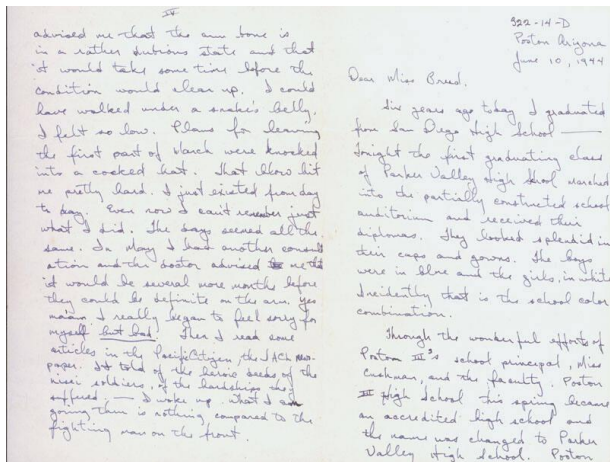 IV
advised me that the arm bone is
in a rather dubious state and that
it would take some time before the
condition would clean up. I could
have walked under a snake's belly.
I felt so low. Plans for leaving
the first part of March were knocked
into a cocked hat. That blow hit
me pretty hard. I just existed from day
to day. Even now I can't remember just
what I did. The days seemed all the
same. In May I had another consult
ation and the doctor advised me that
it would be several more months before
they could be definite on the arm. Yes
ma'am I really began to feel sorry for
myself but bad. Then I read some
articles in the Pacific Citizen, the JACL news-
paper. It told of the heroic deeds of the
nisei soldiers, of the hardships they
suffered. — I woke up. What I am
going thru is nothing compared to the
fighting man on the front.
322-14-D
Poston Arizona
June 10, 1944
Dear Miss Breed,
Six years ago today I graduated
from San Diego High School —
Tonight the first graduating class
of Parker Valley High School marched
into the partially constructed school
auditorium and received their
diplomas. They looked splendid in
their caps and gowns. The boys
were in blue and the girls, in white
Incidently that is the school color
combination.
Through the wonderful efforts of
Poston III's school principal, Miss
Cushman, and the faculty. Poston
III High School this spring became
an accredited high school and
the name was changed to Parker
Valley High School. Poston